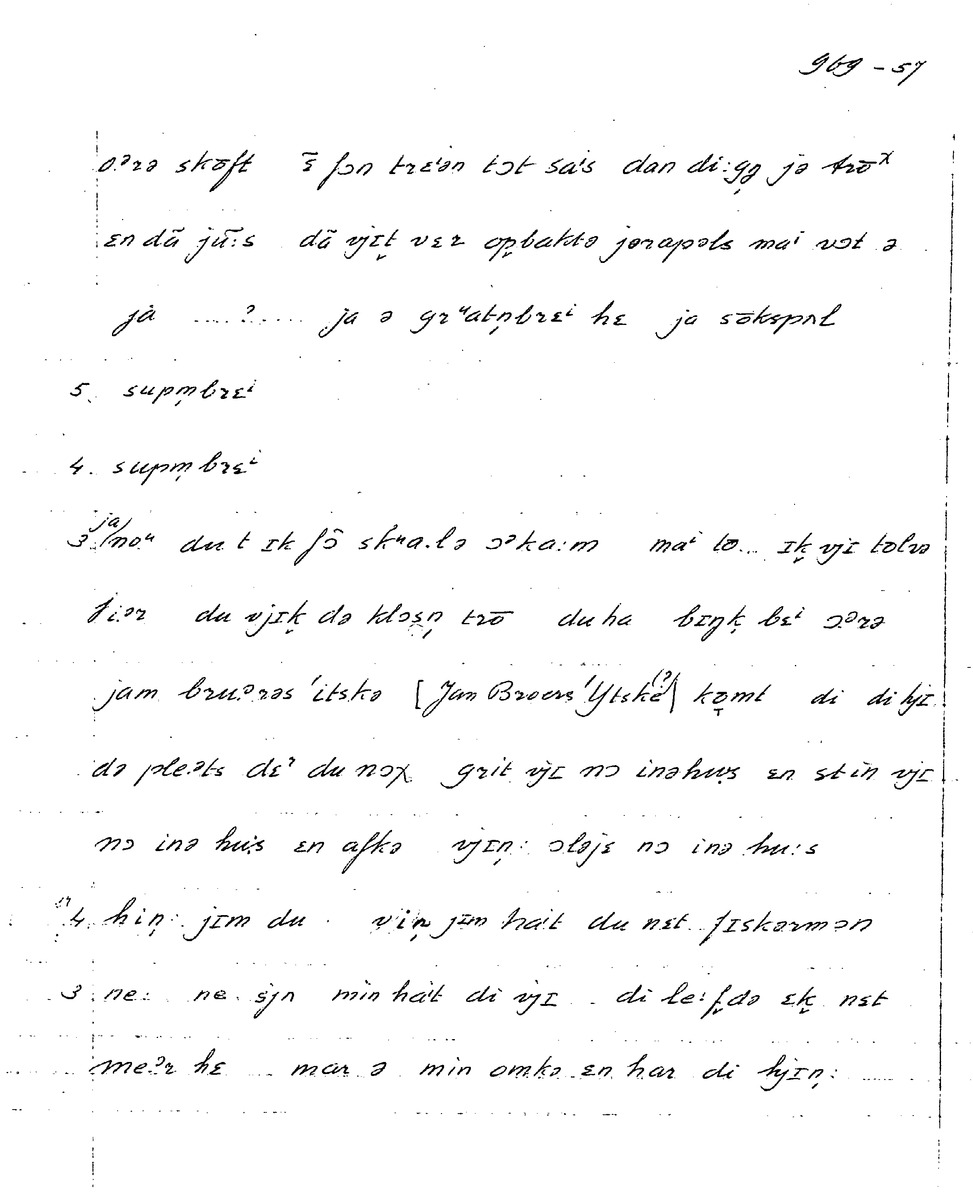 969 - 57
o.ᵊrə skōft ɛ̄ fɔn trɛⁱən tɔt sa'ⁱs dan di:gə̣ jə trōˣ
ɛn dã jũ:s dã vjɪt̬ vɛr op̬baktə jərapəls maⁱ vɔt ə
ja ....?.... ja ə grᵘatṇbrɛⁱ hɛ ja sōkspʌl
5. supm̩brɛⁱ
4. supm̩brɛⁱ
3. ja/noᵘ du t ɪk fɔ̄ skᵘa.lə ɔᵊka:m maⁱ to... ɪk̬ vjɪ tolvə
ji.ər du vjɪk̬ də kləsn̩ trō du ha bɪŋk̬ bɛⁱ ɔ.ᵊrə
jam bru.ᵊrəs 'itskə [Jan Broers 'Ytske(?)] komt di di hjɪ
də ple.ᵊts dɛᵊ du nɔχ grit vjɪ nɔ inəhus̬ ɛn stin vjɪ
nɔ inə hu's ɛn afkə vjɪn̩: ɔləjɛ nɔ inə hu:s
4. hin̩: jɪm du vin̩ jɪm ha't du nɛt fɪskərmən
3. ne: ne sjn min ha't di vjɪ di le:f̬də ɛk̬ nɛt
me.ᵊr hɛ mar ə min omkə ɛn har di hjɪn̩: